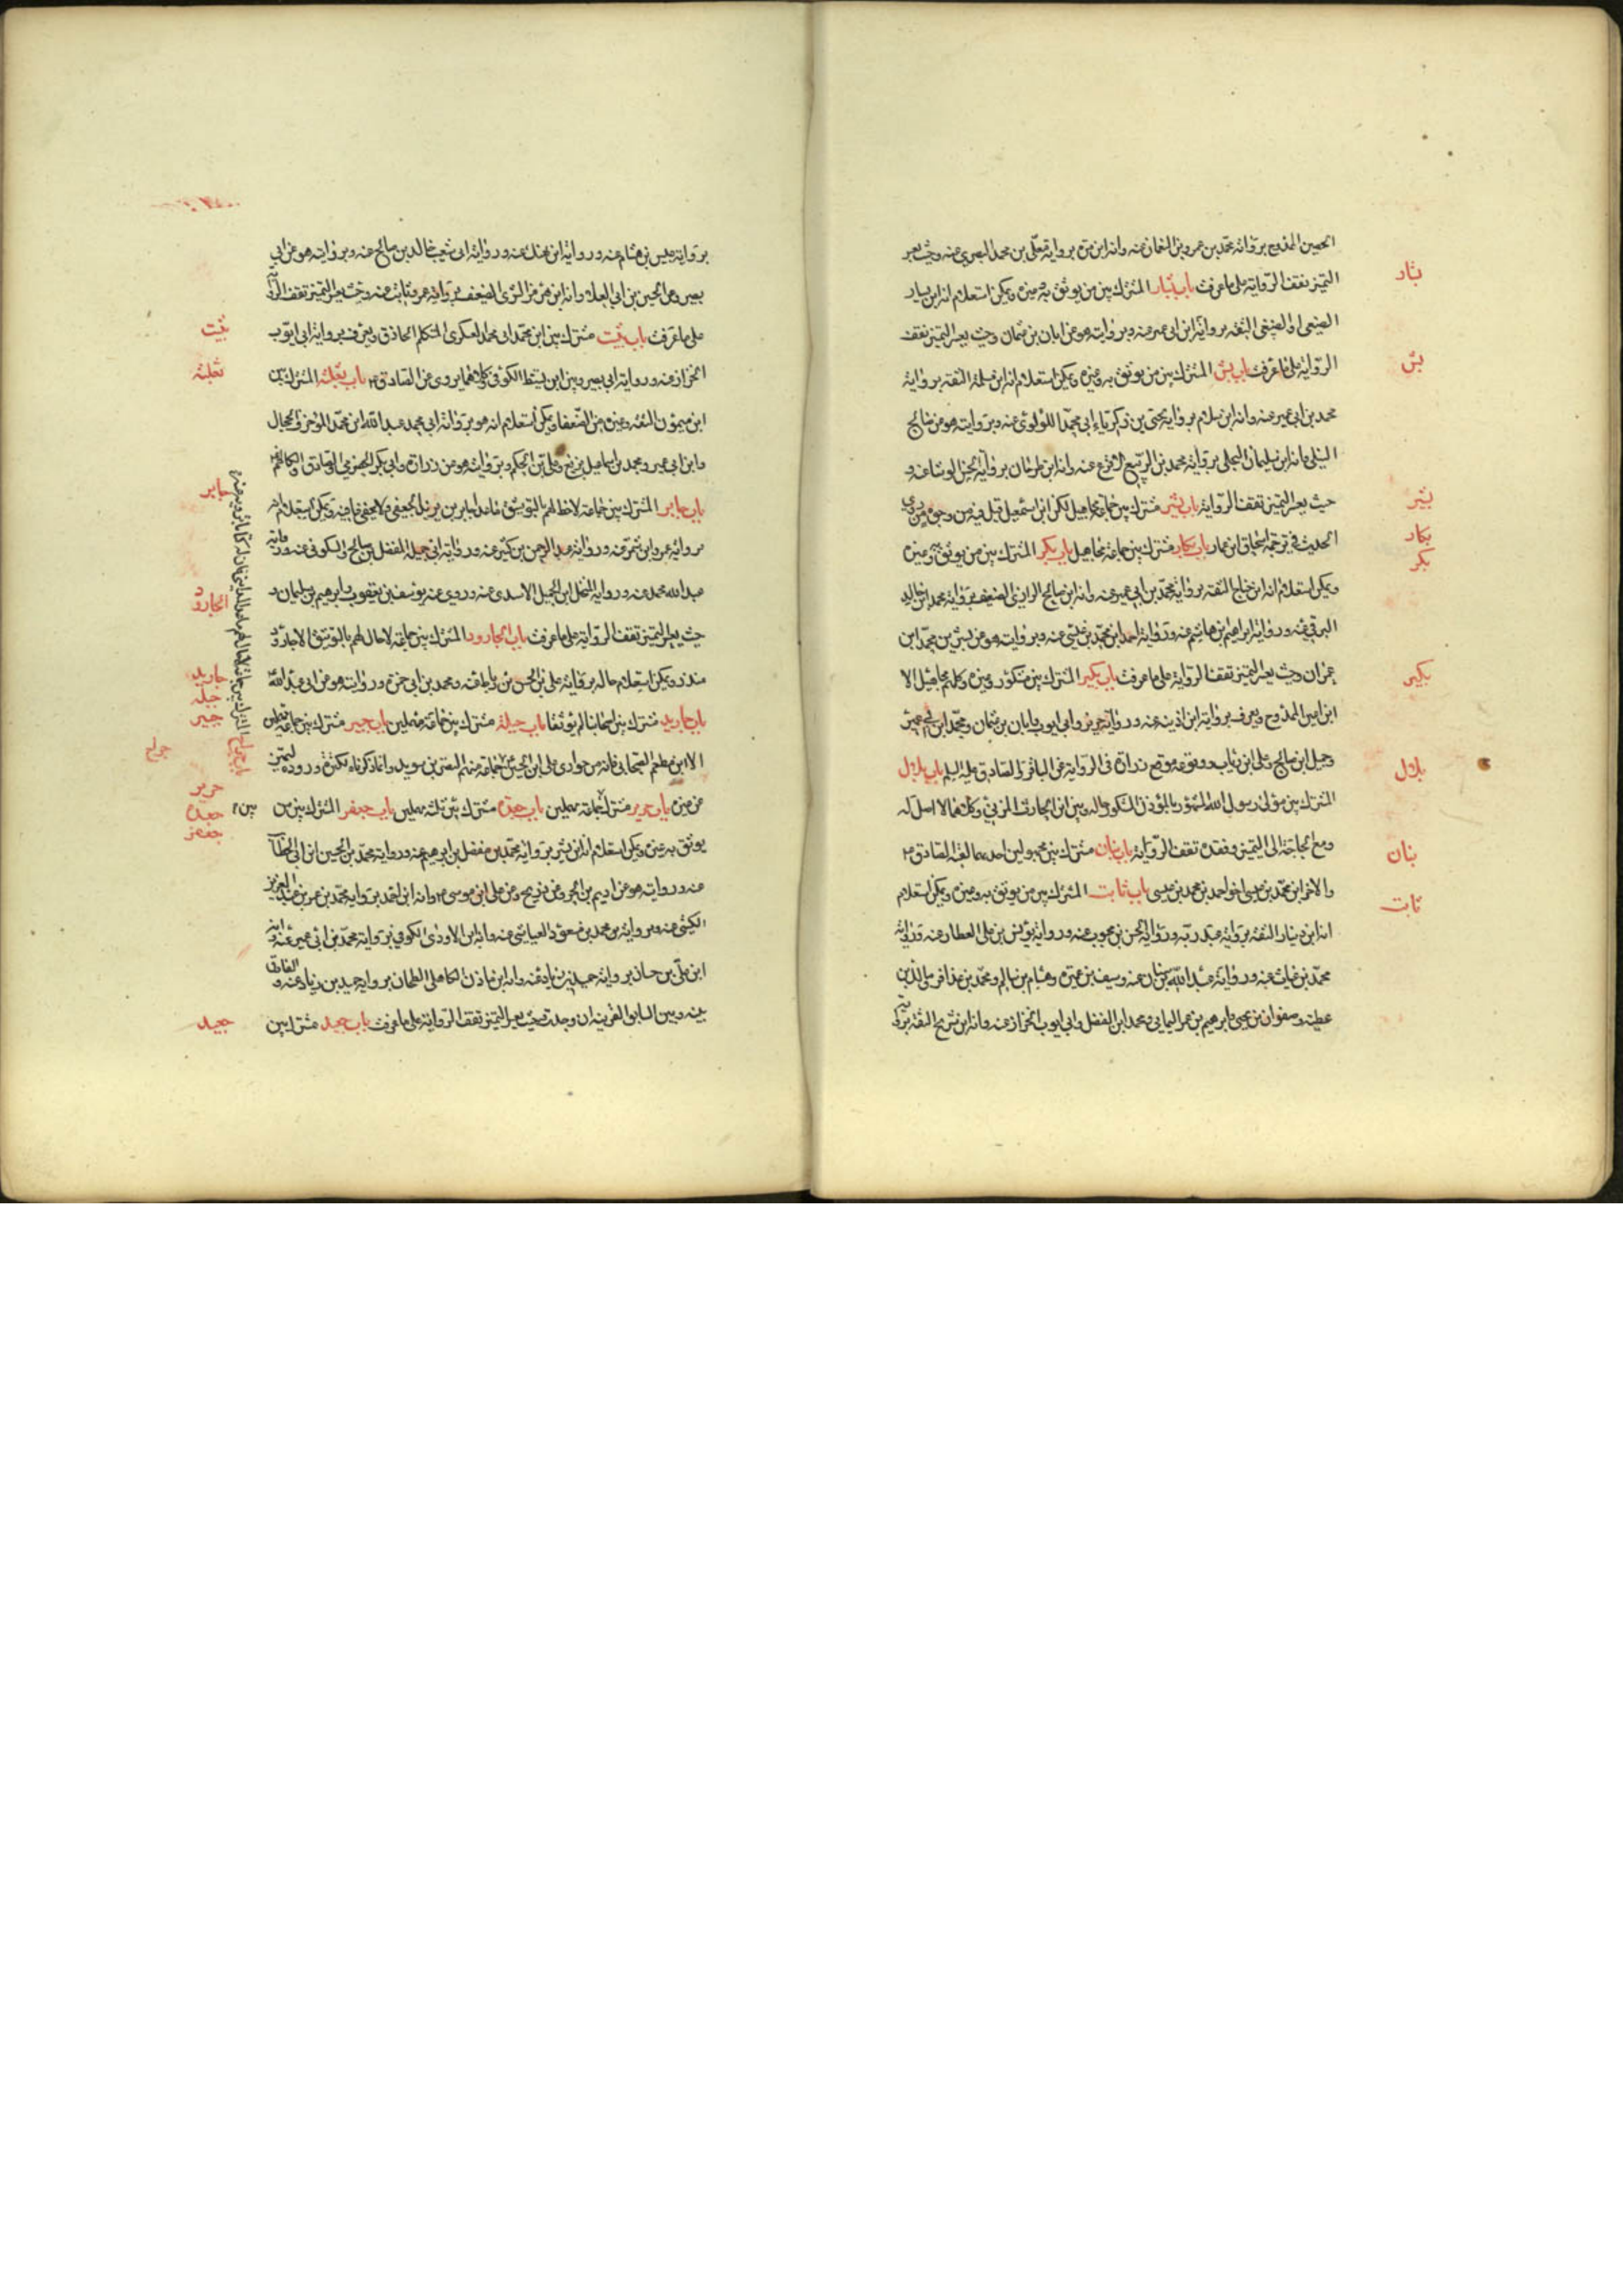 الحصين الممدوح برواية محمد بن عمرو بن النعمان عنه وانه ابن مرة برواية معلى بن محمد البصري عنه وحيث يعسر
التميز تقف الرواية على ما عرفت باب بشار المشترك بين من يوثق به وغيره ويمكن استعلام انه ابن يسار
الضبيعي او الضبيعي الثقة برواية ابن ابي عمير عنه وبروايته هو عن ابان بن عثمان وحيث يعسر التميز تقف
الرواية على ما عرفت باب بشر المشترك بين من يوثق به وغيره ويمكن استعلام انه ابن مسلمة الثقة برواية
محمد بن ابي عمير عنه وانه ابن سلام برواية يحيى بن زكرياء ابي محمد اللؤلؤي عنه وبروايته هو عن صالح
النيلي وانه ابن سليمان البجلي برواية محمد بن الربيع الاقرع عنه وانه ابن طرخان برواية الحسن الوشاء عنه و
حيث يعسر التميز تقف الرواية باب بشير مشترك بين جماعة مجاهيل لكن ابن اسمعيل قيل فيه من وجوه من روى
الحديث في ترجمة اسحاق ابن عمار باب بكار مشترك بين جماعة مجاهيل باب بكر المشترك بين من يوثق به وغيره
ويمكن استعلام انه ابن جناح الثقة برواية محمد بن ابي عمير عنه وانه ابن صالح الرازي الضعيف برواية محمد ابن خالد
البرقي عنه ورواية ابراهيم بن هاشم عنه ورواية احمد ابن محمد بن عيسى عنه وبروايته هو عن بشر بن محمد ابن
عمران وحيث يعسر التميز تقف الرواية على ما عرفت باب بكير المشترك بين مشكور وغيره وكلهم مجاهيل الا
ابن اعين الممدوح ويعرف برواية ابن اذينة عنه ورواية حريز وابي ايوب وابان بن عثمان ومحمد ابن ابي عمير
وجميل ابن صالح وعلى ابن رئاب ووقوعه موقع زرارة في الرواية عن الباقر والصادق عليه السلم باب بلال
المشترك بين مولى رسول الله المشهور بالمؤذن المشكور حاله وبين ابن الحارث المزني وكلاهما لا اصل له
ومع الحاجة الى التميز وفقده تقف الرواية باب بنان مشترك بين مجهولين احدهما لقبه الصادق ع
والاخر ابن محمد بن عيسى اخو احمد بن محمد بن عيسى باب ثابت المشترك بين من يوثق به وغيره ويمكن استعلام
انه ابن دينار الثقة برواية عبد ربه ورواية الحسن بن محبوب عنه ورواية يونس بن علي العطار عنه ورواية
محمد بن غياث عنه ورواية عبد الله بن سنان عنه وسيف بن عميرة وهشام بن سالم ومحمد بن عذافر ومالك بن
عطية وصفوان بن يحيى وابرهيم بن عمر اليماني ومحمد ابن الفضل وابي ايوب الخراز عنه وانه ابن شريح الثقة
بشار
بشر
بشير
بكار
بكر
بكير
بلال
بنان
ثابت
برواية عبيس بن هشام عنه ورواية ابن عنه ورواية ابي شعيب خالد بن صالح عنه وبروايته هو عن ابي
بصير وعن الحسين بن ابي العلاء وانه ابن هرمز الضعيف برواية عمرو بن ثابت عنه وحيث يعسر التميز تقف الرواية
على ما عرفت باب ثبيت مشترك بين ابن محمد ابي محمد العسكري المتكلم الحاذق ويعرف برواية ابي ايوب
الخراز عنه ورواية ابي بصير وبين ابن نشيط الكوفي وكلاهما يروي عن الصادق ع باب ثعلبة المشترك بين
ابن ميمون الثقة وغيره من الضعفاء ويمكن استعلام انه هو برواية ابي محمد عبد الله ابن محمد المزخرف الحجال
وابن ابي عمير ومحمد بن اسماعيل بن بزيع وعلي بن الحكم وبروايته هو عن زرارة وابي بكر الحضرمي والصادق والكاظم ع
باب جابر المشترك بين جماعة لاحظ لهم بالتوثيق ما عدا جابر بن يزيد الجعفي ولا يخفى ما فيه ويمكن استعلام انه هو
برواية عمرو ابن شمر عنه ورواية عبد الرحمن بن كثير عنه ورواية ابي جميلة المفضل بن صالح والسكوني عنه ورواية
عبد الله محمد عنه ورواية النخل ابن الجميل الاسدي عنه وروى عنه يوسف بن يعقوب وابرهيم بن سليمان و
حيث يعسر التميز تقف الرواية على ما عرفت باب الجارود المشترك بين جماعة لا حال لهم بالتوثيق الا جارود
منذر ويمكن استعلام حاله برواية علي بن الحسن بن رباط عنه ومحمد بن ابي حمزة وروايته هو عن ابي عبد الله ع
باب جاريه مشترك بين اصحابنا لم يوثقا باب جبلة مشترك بين جماعة مهملين باب جبير مشترك بين جماعة مهملين
الا ابن مطعم الصحابي فانه من حواري علي ابن الحسين ع جماعة منهم النضر بن سويد وانما ذكرناه لكثرة وروده ليتميز
عن غيره باب جرير مشترك جماعة مهملين باب جعدة مشترك بين ثلثة مهملين باب جعفر المشترك بين من
يوثق به وغيره ويمكن استعلام انه ابن بشير برواية محمد بن مفضل بن ابرهيم عنه ورواية محمد بن الحسين ابن ابي الخطاب
عنه وروايته هو عن اديم بن الحر وعن ذريح وعن علي ابن موسى ع وانه ابن احمد برواية محمد بن عمر بن عبد العزيز
الكشي عنه وبرواية بن محمد بن مسعود العياشي عنه وانه ابن الاودي الكوفي برواية محمد بن ابي عمير عنه وانه
ابن علي بن حسان برواية حميد بن زياد عنه وانه ابن مازن الكاهلي الطحان برواية حميد بن زياد عنه و الفارق
بينه وبين السابق القرينة ان وجدت وحيث يعسر التميز تقف الرواية على ما عرفت باب جعيد مشترك بين
ثبيت
ثعلبة
جابر
الجارود
جاريه
جبلة
جبير
جراح
جرير
جعدة
جعفر
جعيد
باب جراح